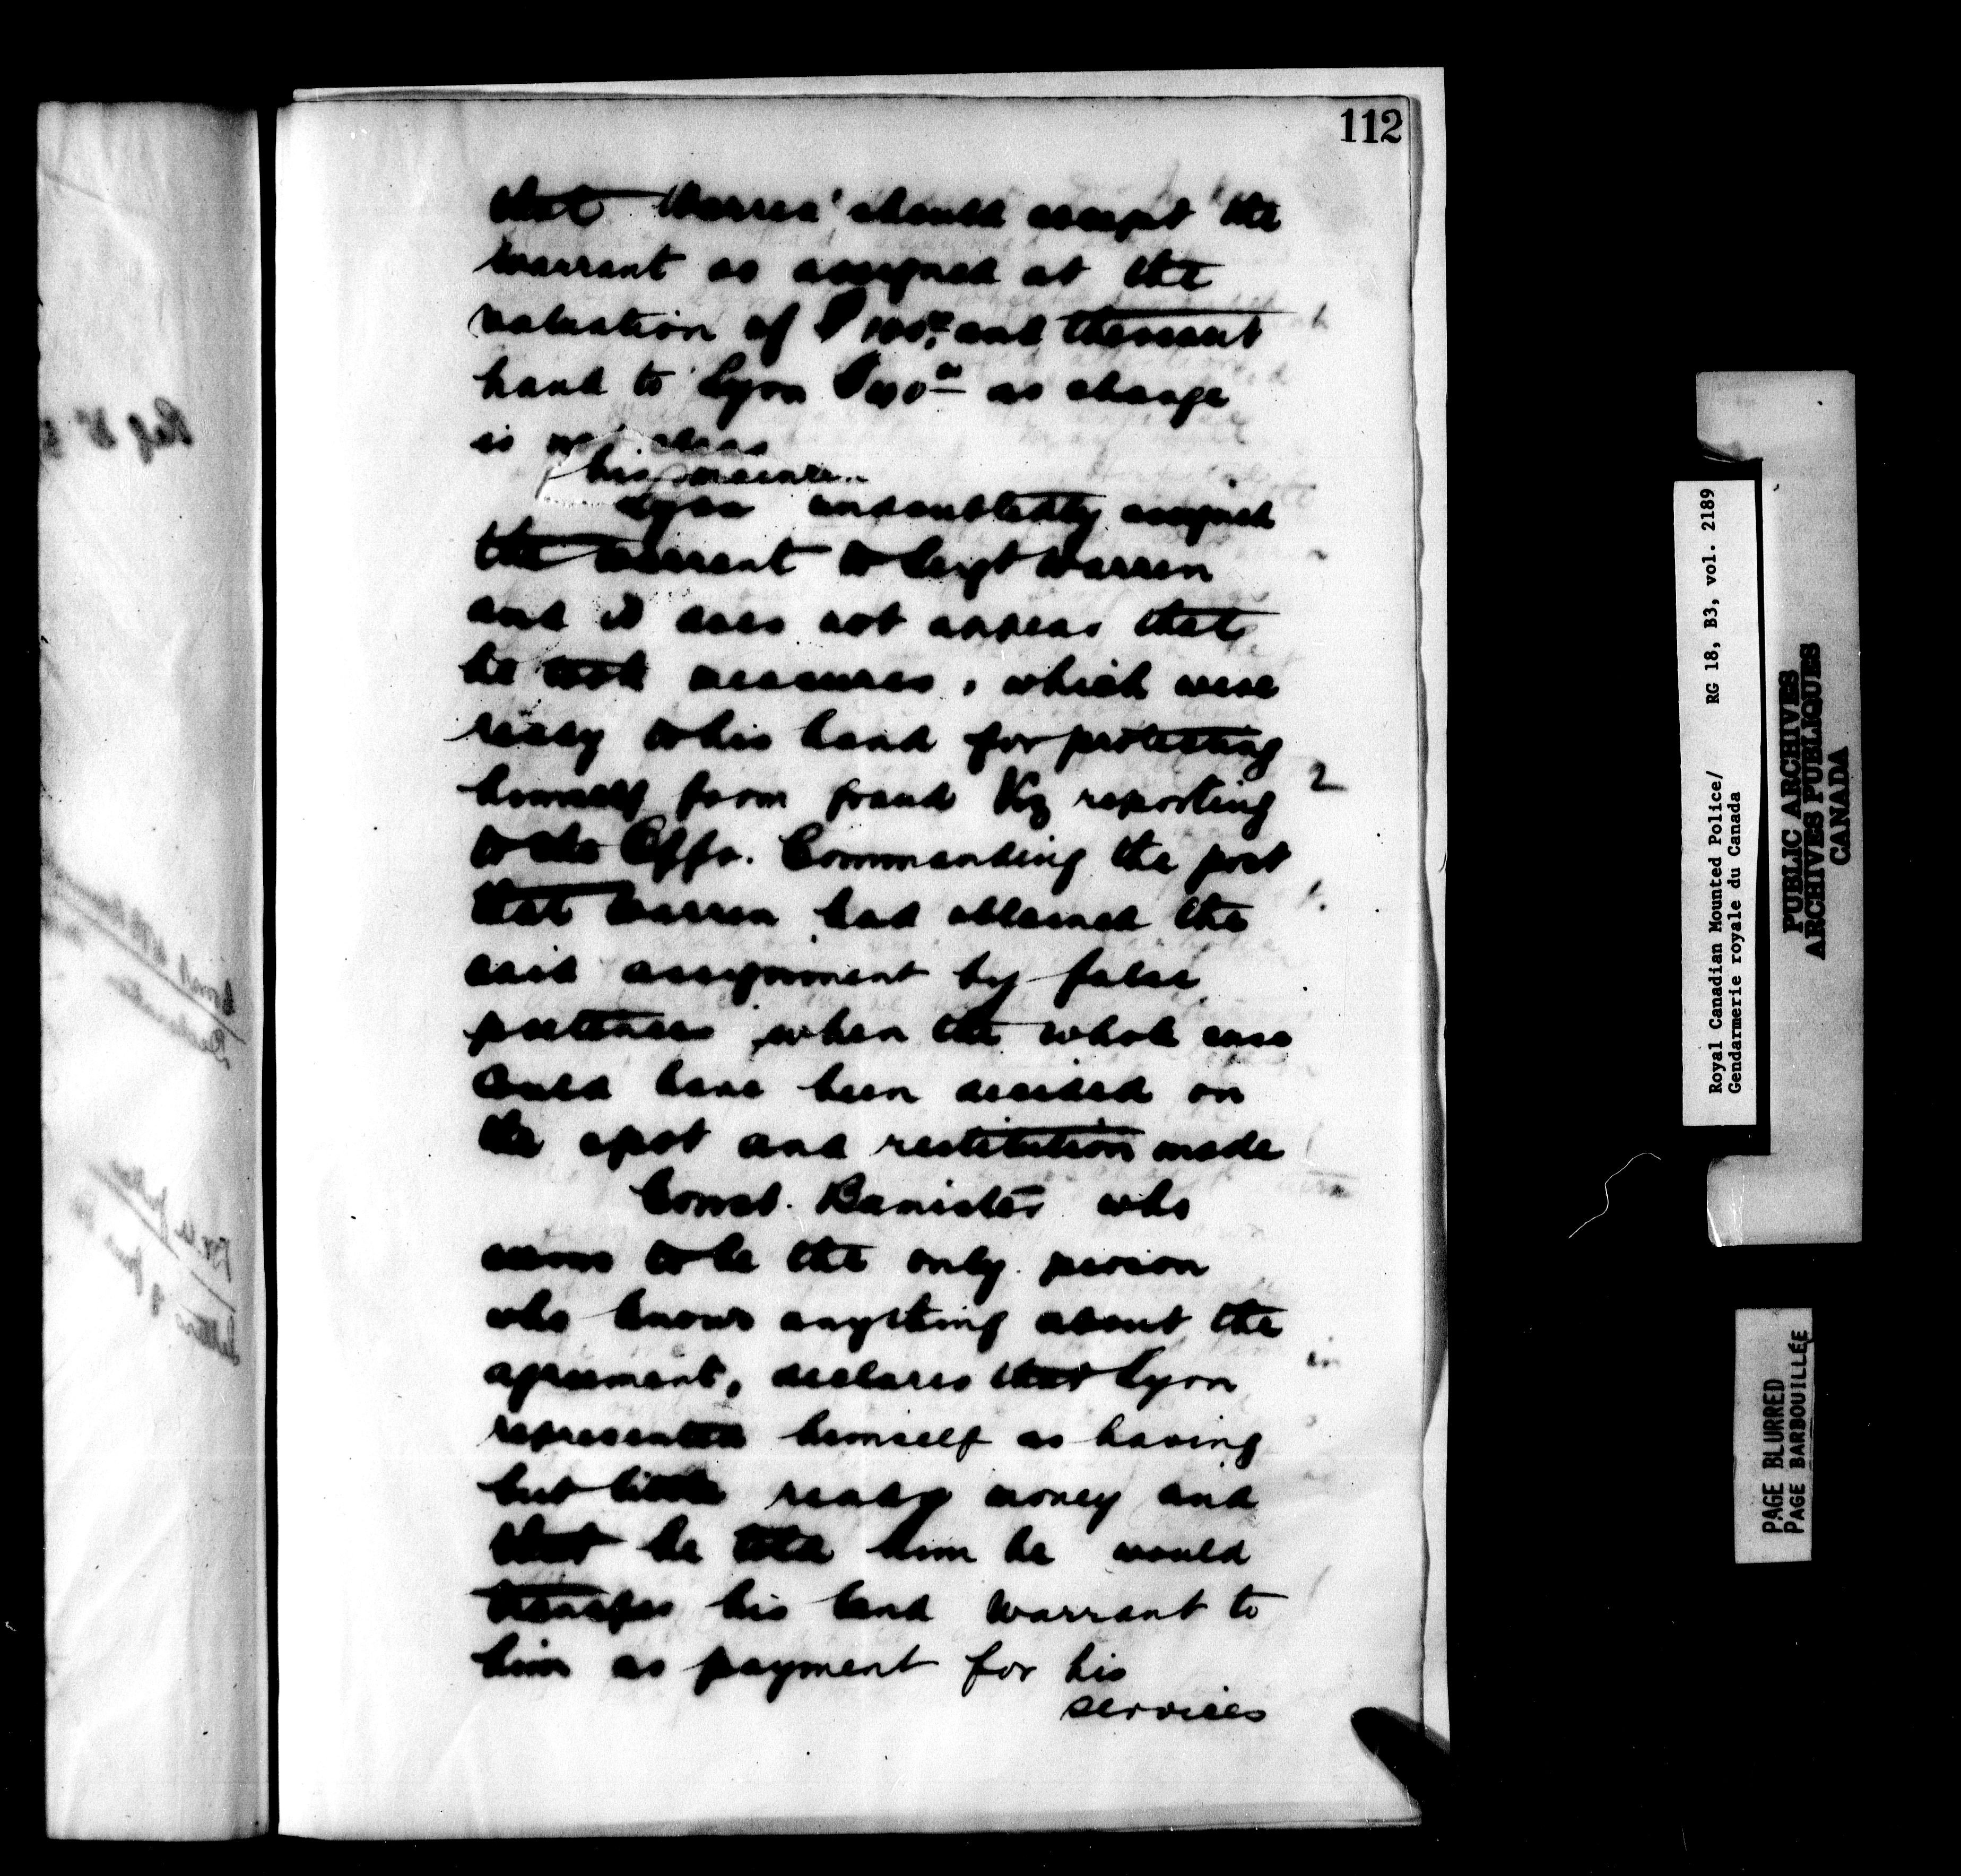 112
that Warren should accept the
warrant as assigned at the
valuation of $100.00 and
hand to Lyon $40.00 as change
is not clear
his
Lyon undoubtedly assigned
the warrant to Sergt Warren
and it does not appear that
he took measures, which were
ready to his hand for protecting
himself from fraud Viz reporting
to the Offr. Commanding the post
that Warren had obtained the
said assignment by false
pretences, when the whole case
could have been decided on
the spot and restitution made
Const. Banister who
seems to be the only person
who knows anything about the
agreement, declares that Lyon
represented himself as having
but little ready money and
that he told him he would
transfer his land warrant to
him as payment for his
services
Royal Canadian Mounted Police/ RG 18, B3, vol. 2189
Gendarmerie royale du Canada
PUBLIC ARCHIVES
ARCHIVES PUBLIQUES
CANADA
PAGE BLURRED
PAGE BARBOUILLÉE